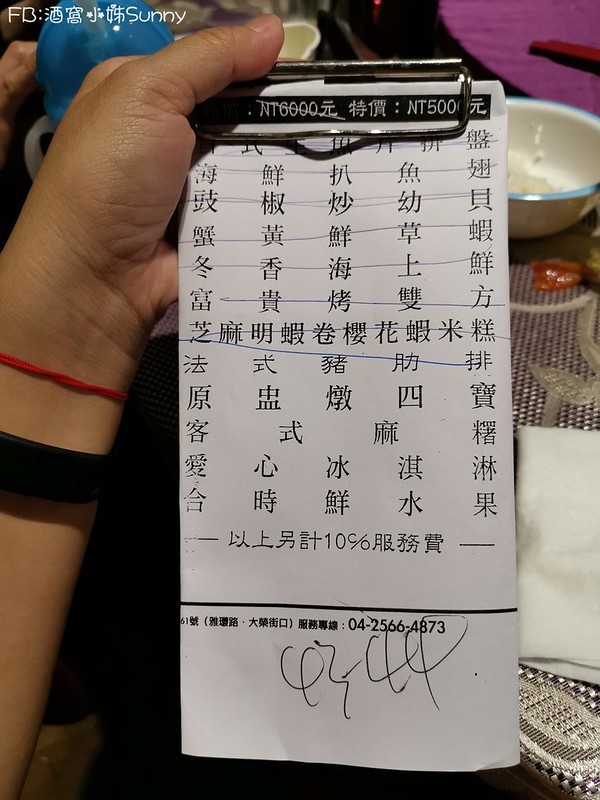 FB:酒窩小姊Sunny
：NT6000元 特價：NT5000元
式 拼盤
海鮮扒魚翅
豉椒炒幼貝
蟹黃鮮草蝦
冬香海上鮮
富貴烤雙方
芝麻明蝦卷櫻花蝦米糕
法式豬肋排
原盅燉四寶
客式麻糬
愛心冰淇淋
合時鮮水果
以上另計10%服務費
61號（雅環路．大榮街口）服務專線：04-2566-4873